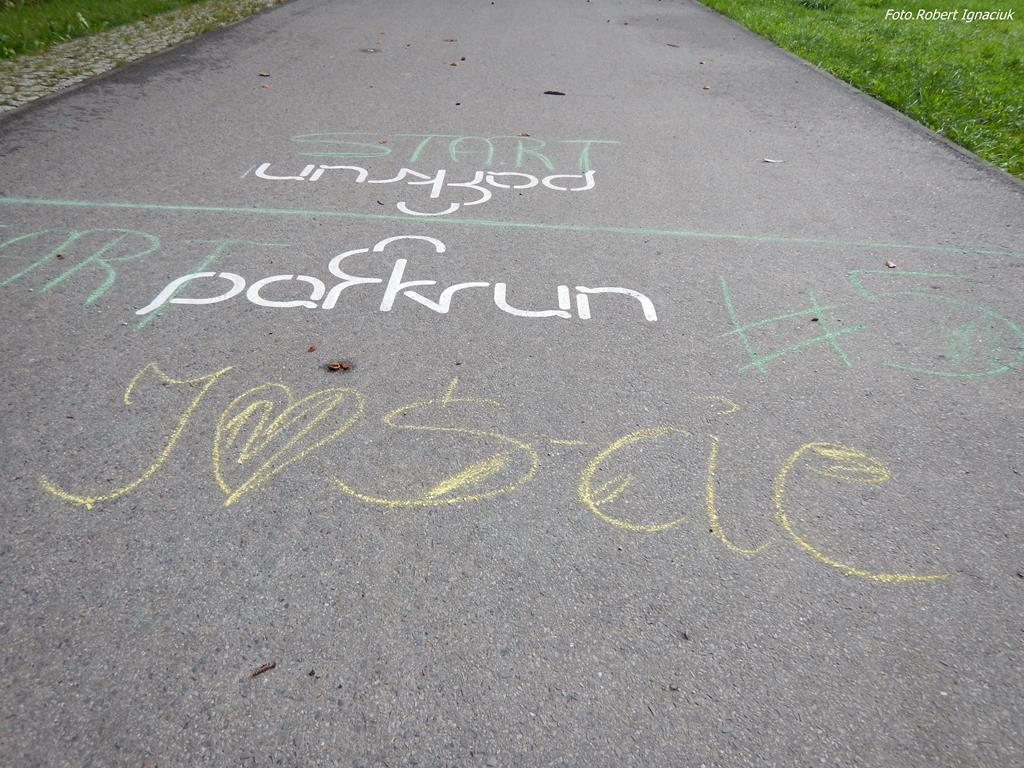 Foto.Robert Ignaciuk
START
parkrun
START
parkrun
#5
I ♥ S-cie